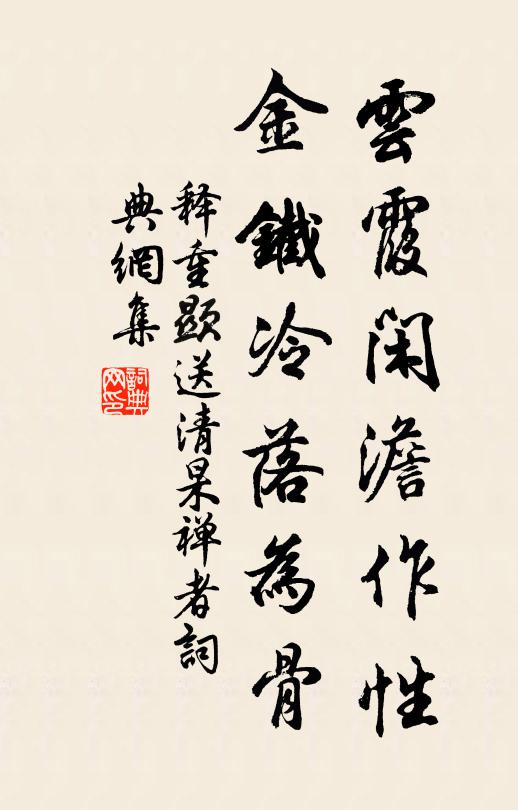 雲霞閑澹作性
金鐵冷落為骨
释重顯送清杲禅者詞
典網集
詞典网印